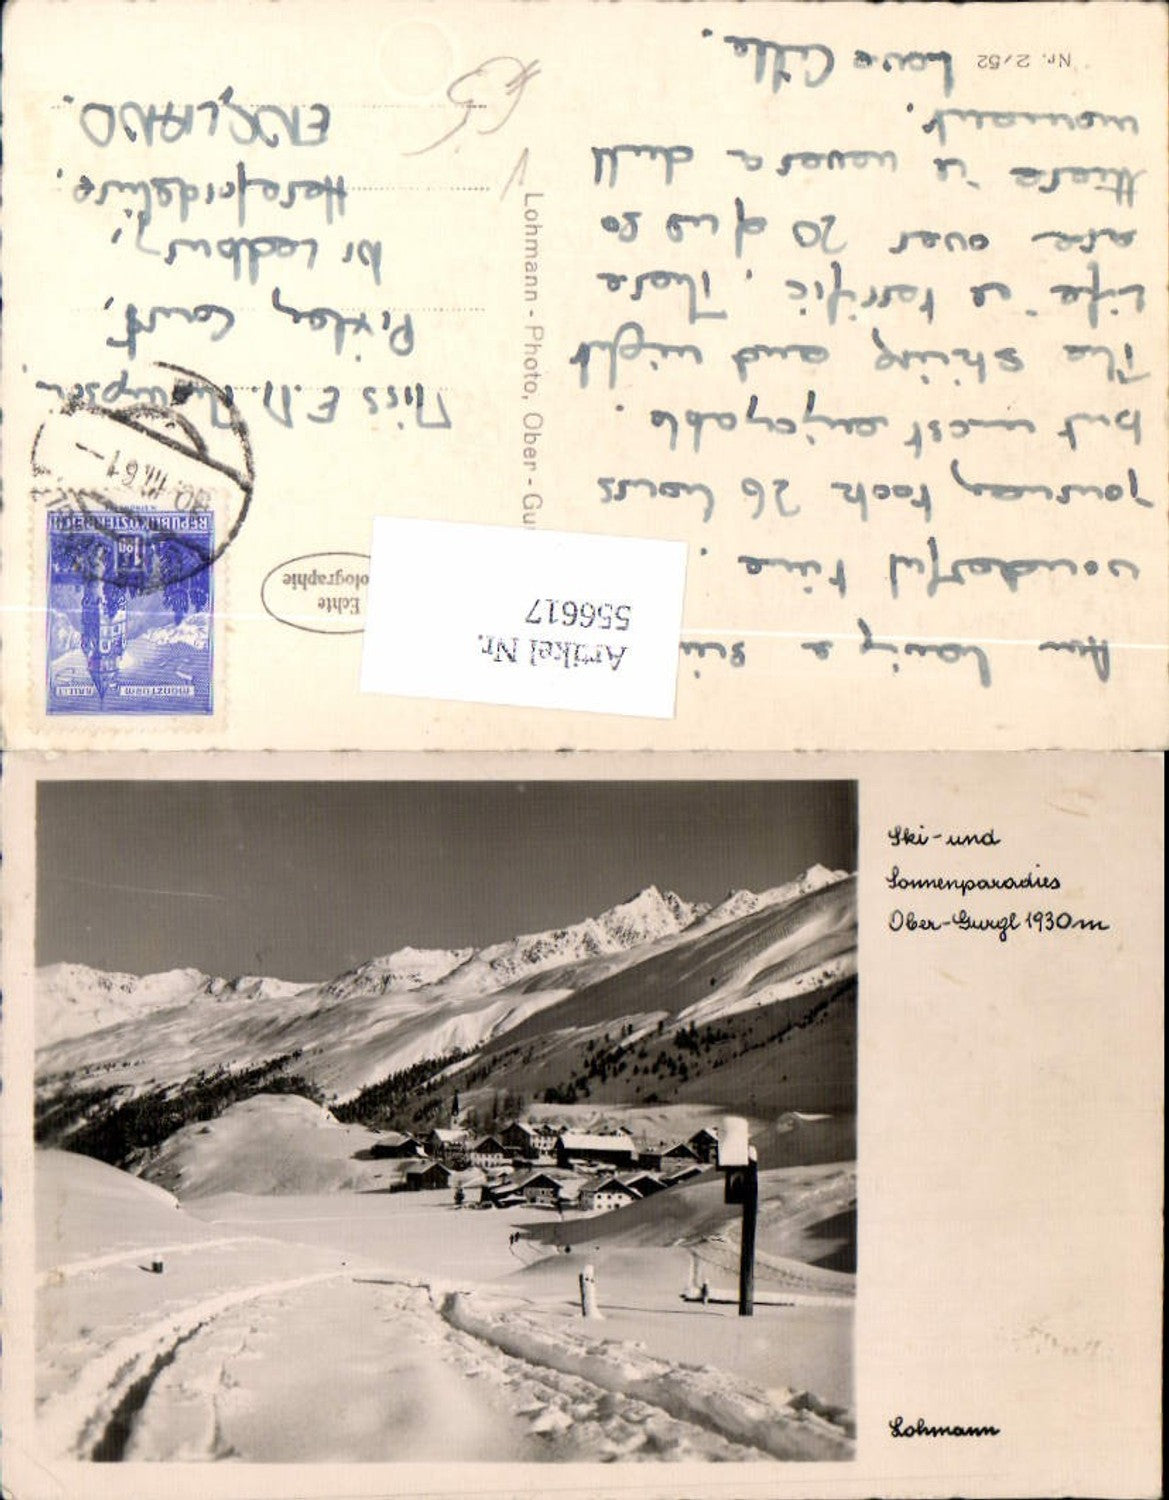 Am having a
wonderful time.
Journey took 26 hours
but most enjoyable.
The skiing and night
life is terrific. There
are over 20 of us so
there is never a dull
moment.
Nr. 2/52
Love
Echte
Artikel Nr.
556617
Lohmann - Photo, Ober - Gu
Miss E.M.
Pixley Court,
Nr Ledbury,
Herefordshire.
ENGLAND.
REPUBLIK ÖSTERREICH
MÜNZTURM
III.61
Ski- und
Sonnenparadies
Ober-Gurgl 1930m
Lohmann